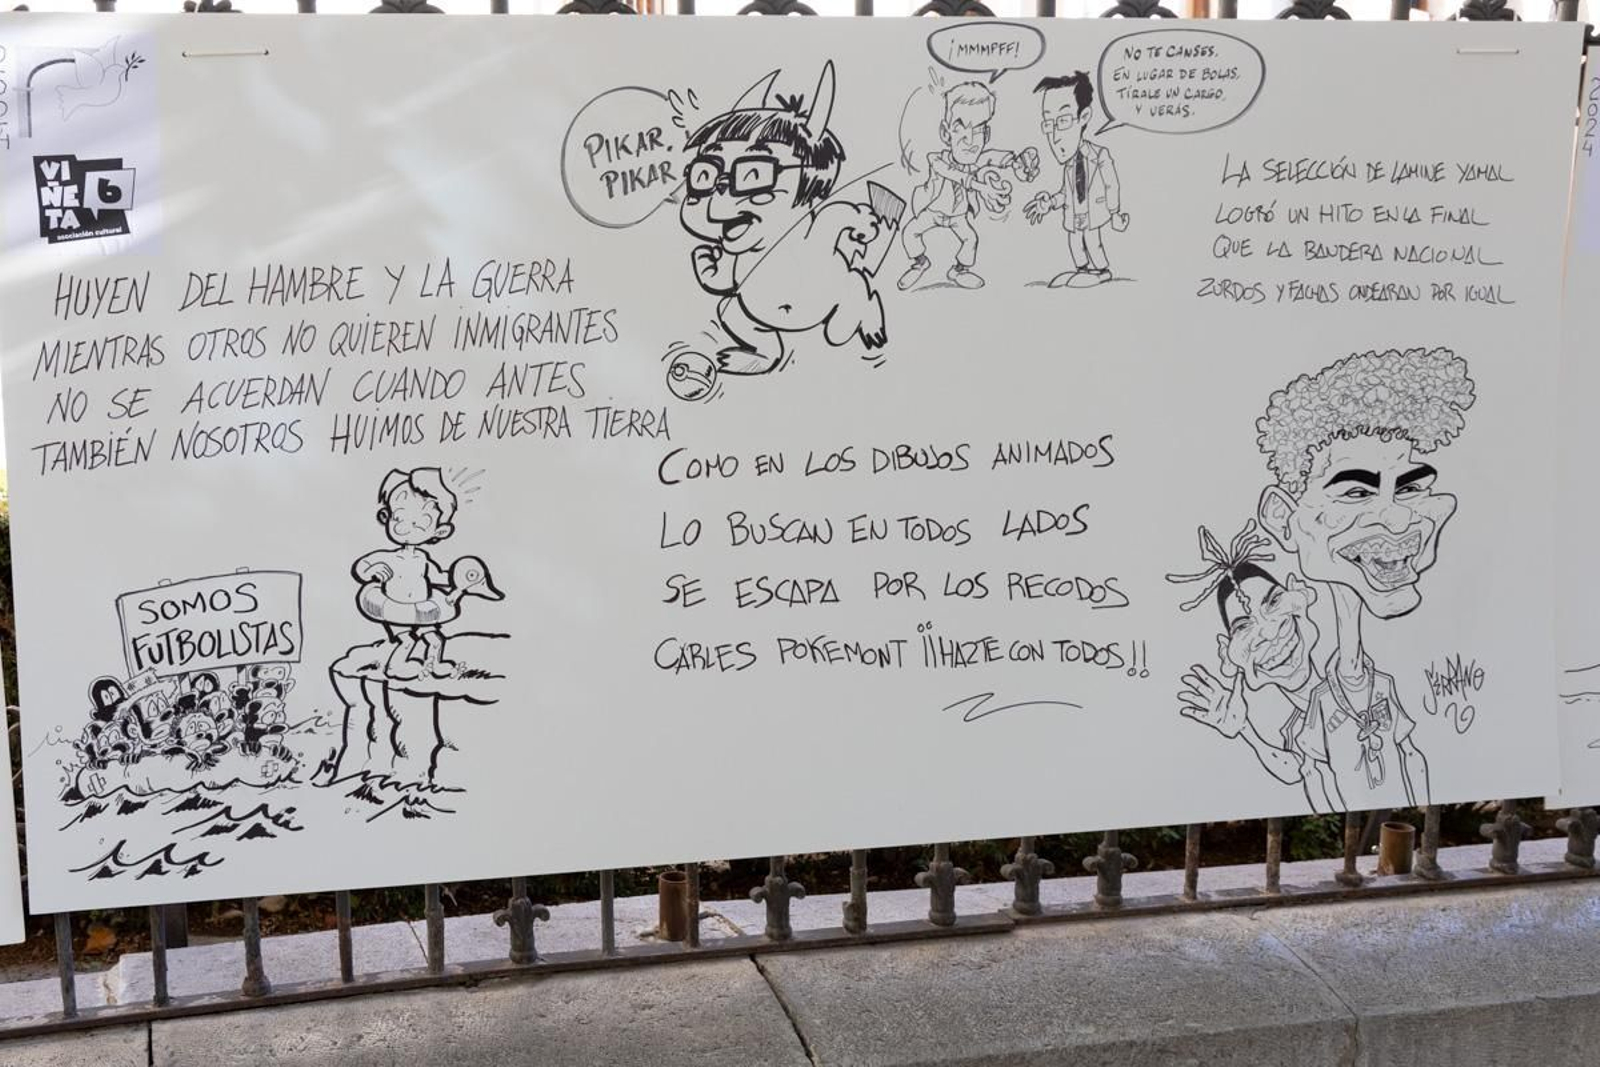 VIÑETA 6
asociación cultural
HUYEN DEL HAMBRE Y LA GUERRA
MIENTRAS OTROS NO QUIEREN INMIGRANTES
NO SE ACUERDAN CUANDO ANTES
TAMBIÉN NOSOTROS HUIMOS DE NUESTRA TIERRA
SOMOS
FUTBOLISTAS
PIKAR,
PIKAR
¡MMMPFF!
NO TE CANSES.
EN LUGAR DE BOLAS,
TÍRALE UN CARGO,
Y VERÁS.
COMO EN LOS DIBUJOS ANIMADOS
LO BUSCAN EN TODOS LADOS
SE ESCAPA POR LOS RECODOS
CARLES POKEMONT ¡¡HAZTE CON TODOS!!
LA SELECCIÓN DE LAMINE YAMAL
LOGRÓ UN HITO EN LA FINAL
QUE LA BANDERA NACIONAL
ZURDOS Y FACHAS ONDEARAN POR IGUAL
SERRANO
2024